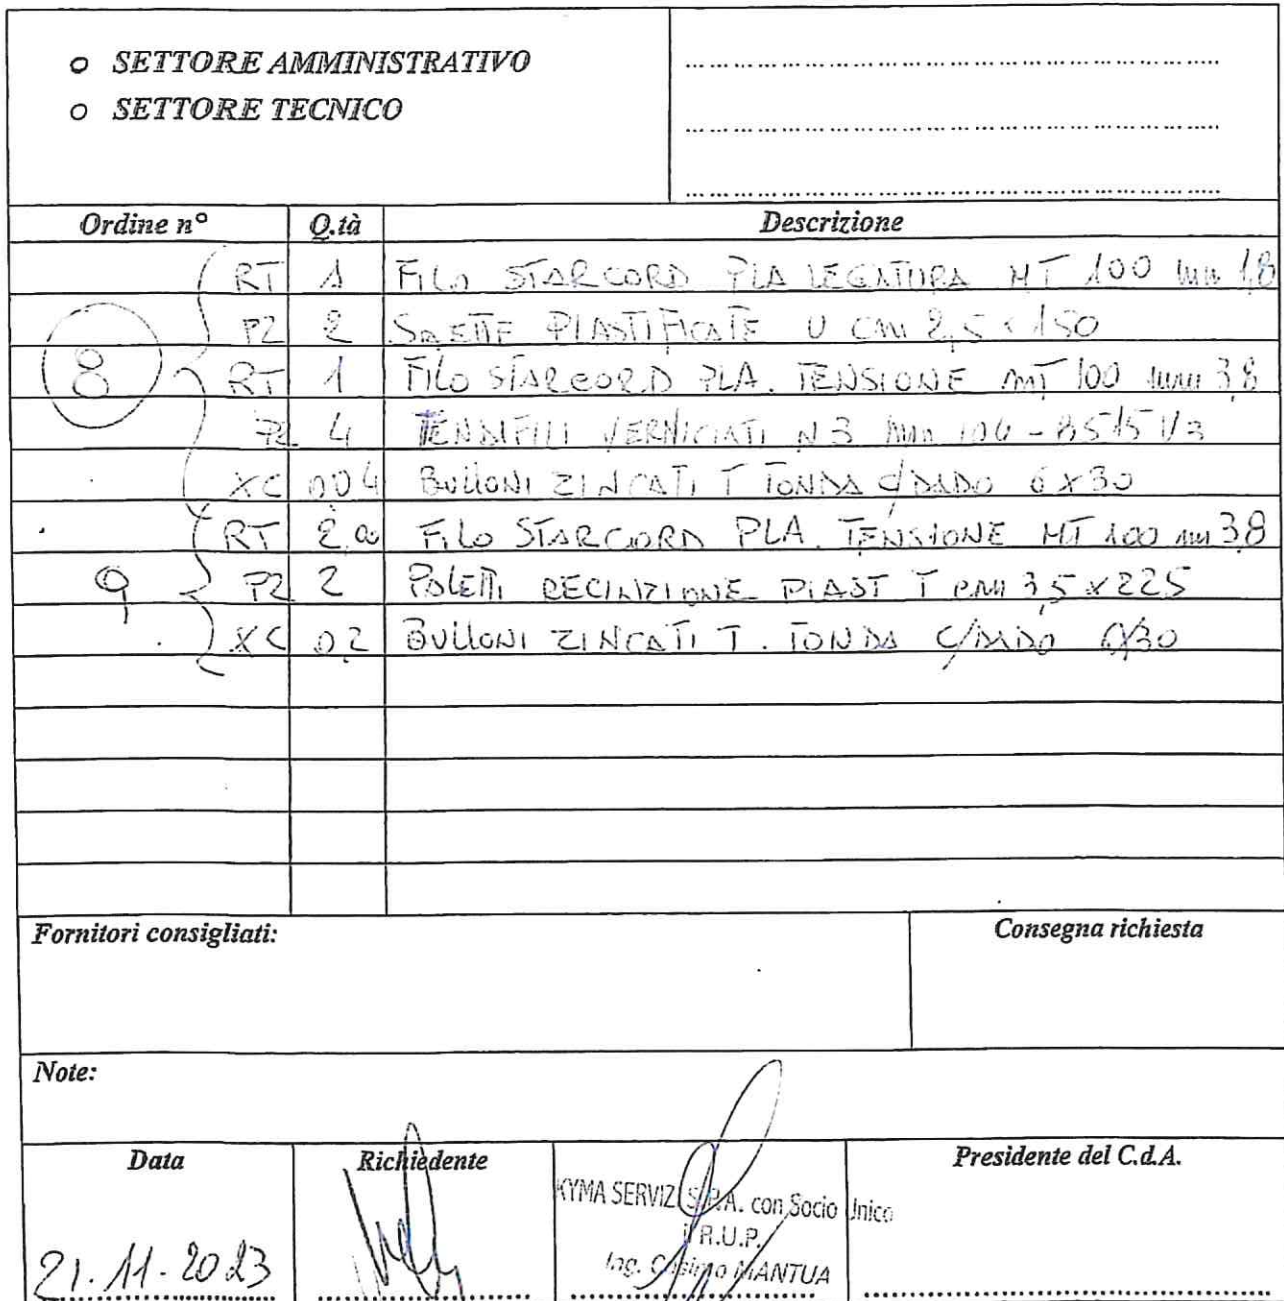 o SETTORE AMMINISTRATIVO
o SETTORE TECNICO
Ordine n° Q.tà Descrizione
RT 1 FILO STARCORD PLA LEGATURA MT 100 mm 1,8
PZ 2 SAETTE PLASTIFICATE U CM 2,5 x 150
8 RT 1 FILO STARCORD PLA. TENSIONE MT 100 mm 3,8
PZ 4 TENDIFILI VERNICIATI N 3 mm 104 -
XC 0,04 BULLONI ZINCATI T TONDA C/DADO 6X30
RT 2,00 FILO STARCORD PLA. TENSIONE MT 100 mm 3,8
9 PZ 2 PALETTI RECINZIONE PLAST T CM 3,5 x 225
XC 0,2 BULLONI ZINCATI T. TONDA C/DADO 6X30
Fornitori consigliati: Consegna richiesta
Note:
Data Richiedente Presidente del C.d.A.
KYMA SERVIZI S.P.A. con Socio Unico
R.U.P.
Ing. Cosimo MANTUA
21.11.2023